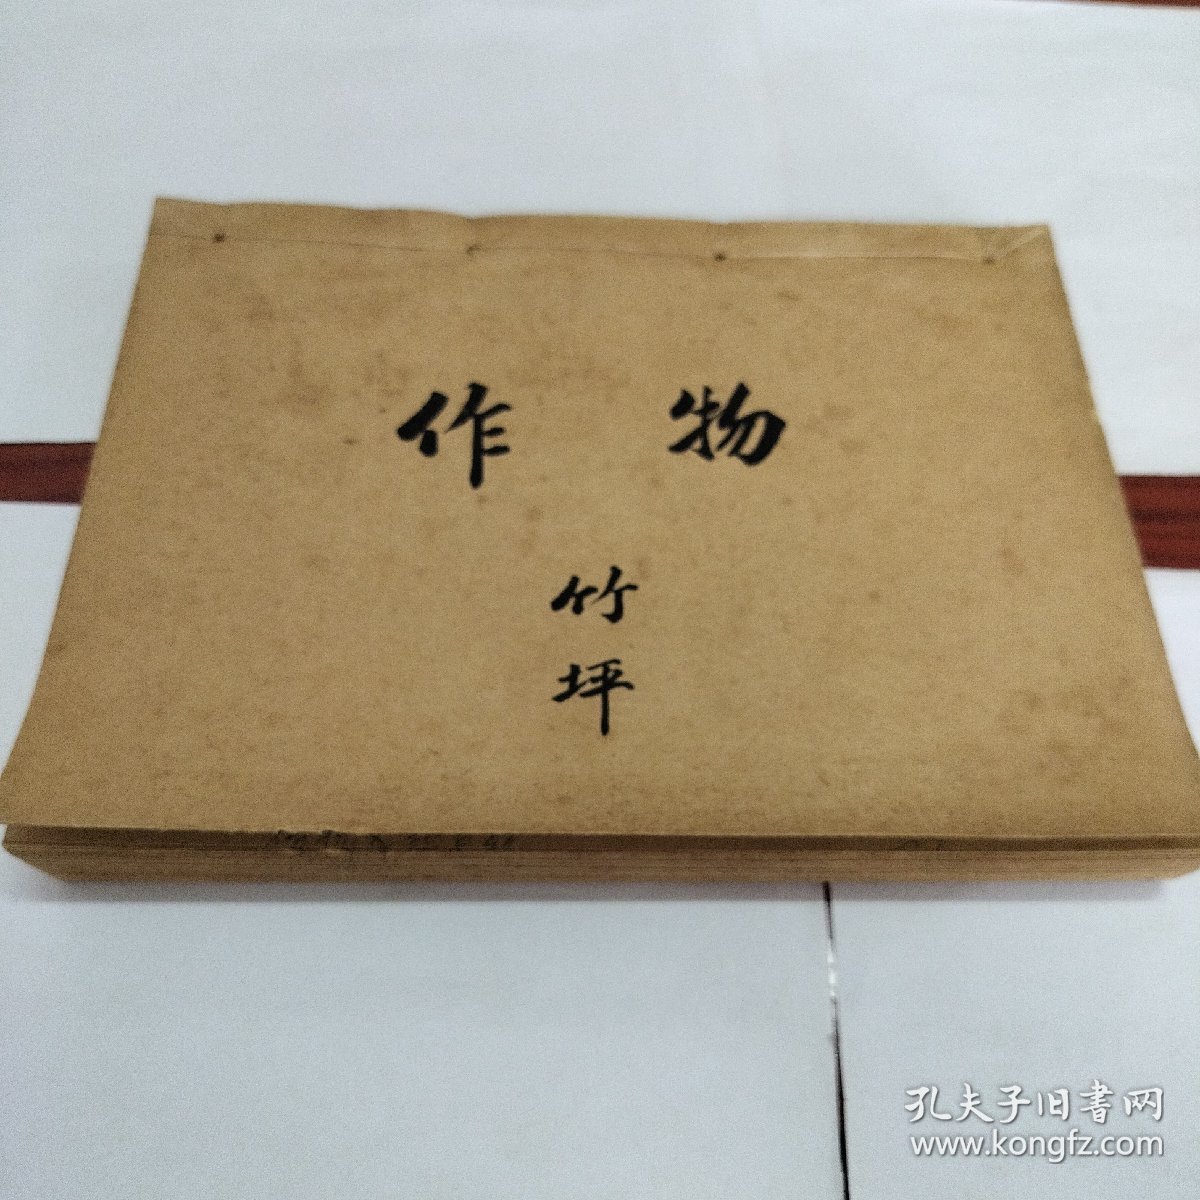 作物
竹
坪
孔夫子旧書网
www.kongfz.com